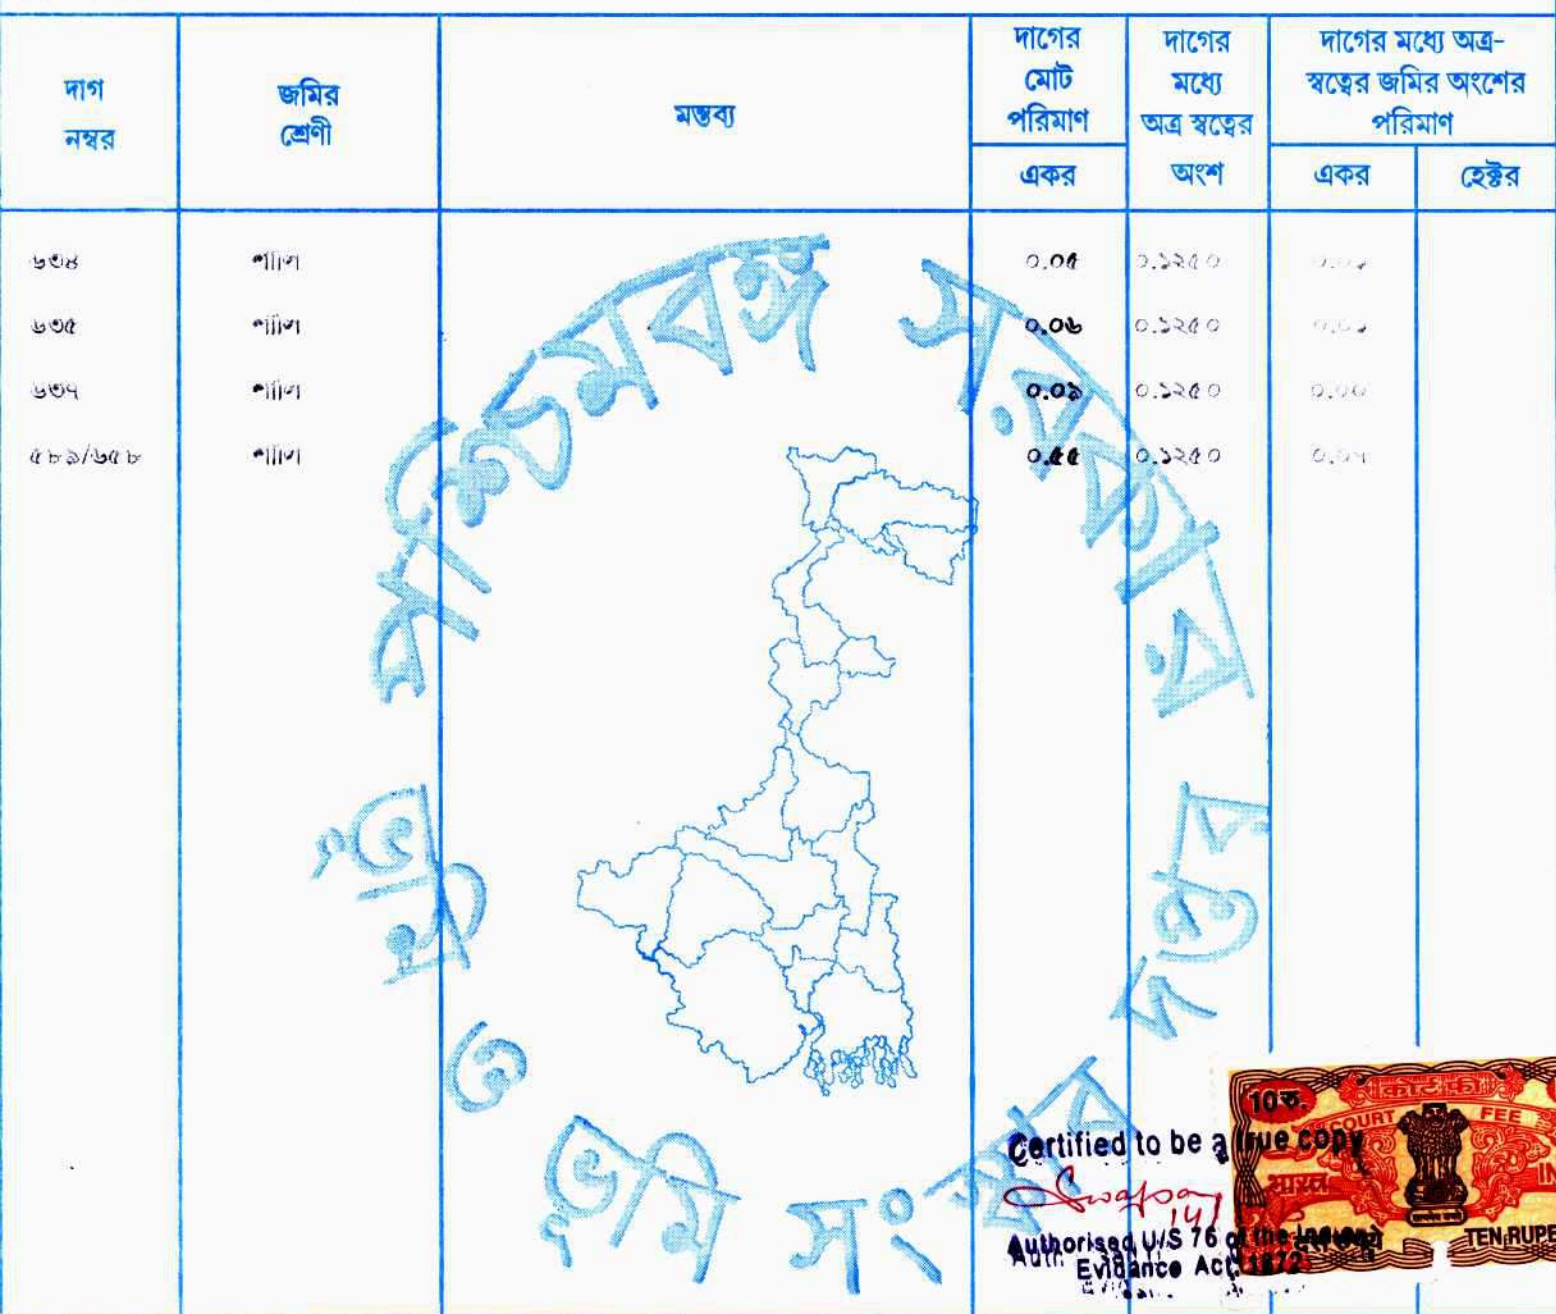 দাগ নম্বর	জমির শ্রেণী	মন্তব্য	দাগের মোট পরিমাণ	দাগের মধ্যে অত্র স্বত্বের অংশ	দাগের মধ্যে অত্র-স্বত্বের জমির অংশের পরিমাণ
একর	একর	হেক্টর
৬৩৪	শালি	০.০৫	০.১২৫০
৬৩৫	শালি	০.০৬	০.১২৫০
৬৩৭	শালি	০.০৯	০.১২৫০
৫৮৯/৬৫৮	শালি	০.৫৫	০.১২৫০
পশ্চিমবঙ্গ সরকার
ভূমি ও ভূমি সংস্কার দপ্তর
10 रु.
कोर्ट फी
COURT FEE
भारत
TEN RUPE
Certified to be a true copy
Authorised U/S 76 of the Indian
Evidance Act, 1872